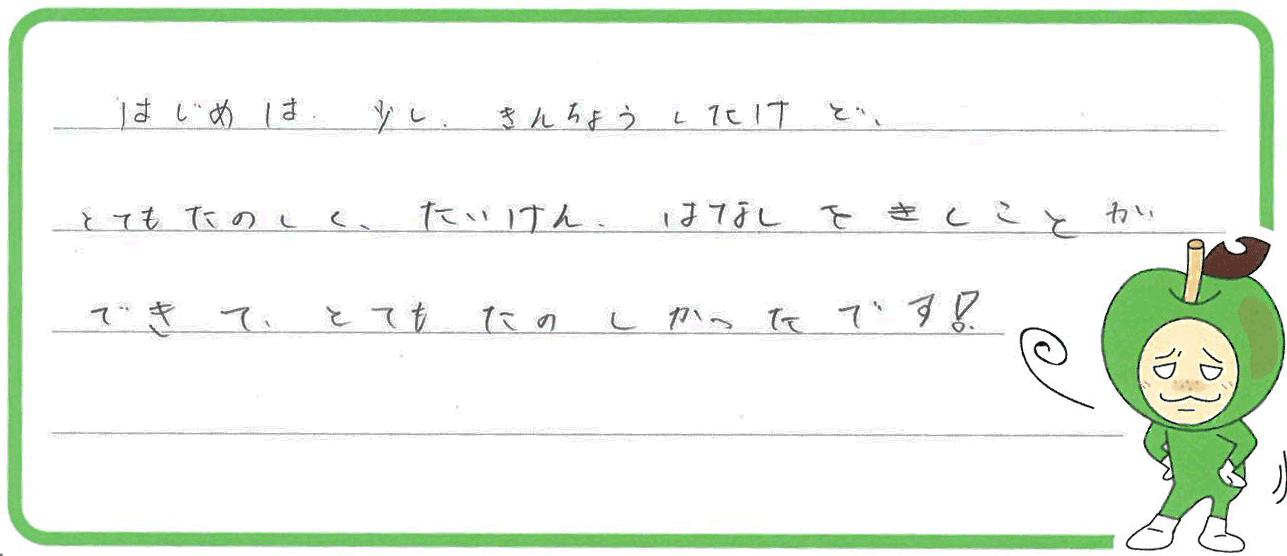 はじめは、少し、きんちょうしたけど、
とてもたのしく、たいけん、はなしをきくことが
できて、とてもたのしかったです!